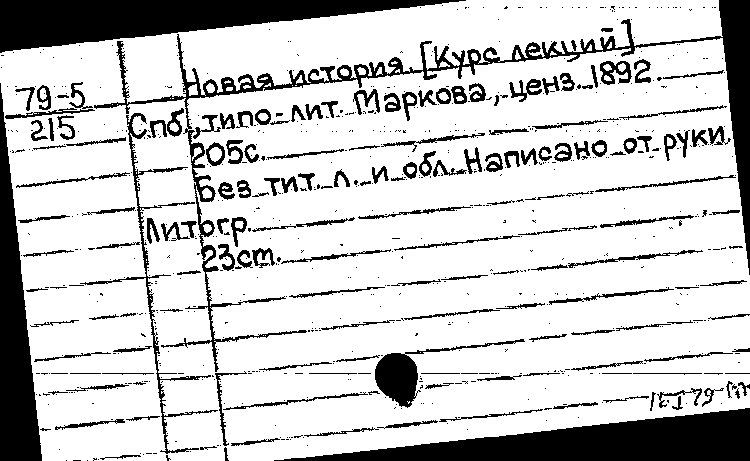 Новая история. [Курс лекций]
79-5
215
Спб., типо-лит. Маркова, ценз. 1892.
205с.
Без тит. л. и обл. Написано от руки
Литогр.
23см.